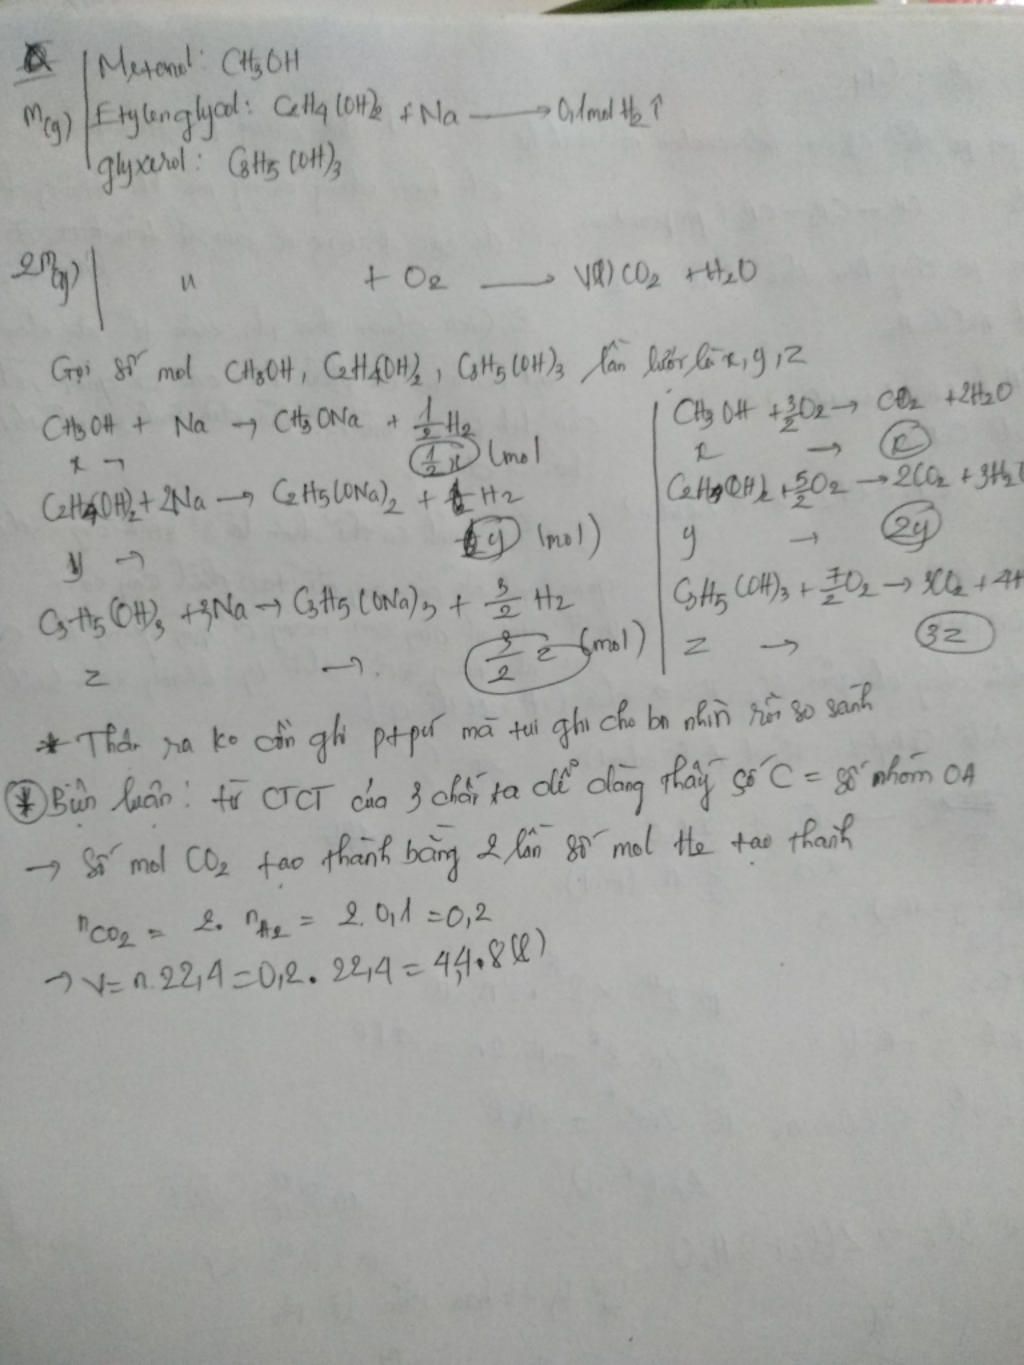 Metanol: CH3OH
m(g) Etylenglycol: C2H4(OH)2 + Na → 0,1mol H2↑
glyxerol: C3H5(OH)3
2m(g) " + O2 → V(l) CO2 + H2O
Gọi số mol CH3OH, C2H4(OH)2, C3H5(OH)3 lần lượt là x, y, z
CH3OH + Na → CH3ONa + 1/2 H2
x → 1/2 x (mol
C2H4(OH)2 + 2Na → C2H5(ONa)2 + H2
y → y (mol)
C3H5(OH)3 + 3Na → C3H5(ONa)3 + 3/2 H2
z → 3/2 z (mol)
CH3OH + 3/2 O2 → CO2 + 2H2O
x → x
C2H4(OH)2 + 5/2 O2 → 2CO2 + 3H2O
y → 2y
C3H5(OH)3 + 7/2 O2 → 3CO2 + 4H
z → 3z
* Thật ra ko cần ghi ptpứ mà tui ghi cho bn nhìn rồi so sánh
* Biện luận: từ CTCT của 3 chất ta dễ dàng thấy số C = số nhóm OH
→ Số mol CO2 tạo thành bằng 2 lần số mol H2 tạo thành
nCO2 = 2. nH2 = 2. 0,1 = 0,2
→ V = n. 22,4 = 0,2 . 22,4 = 4,48(l)